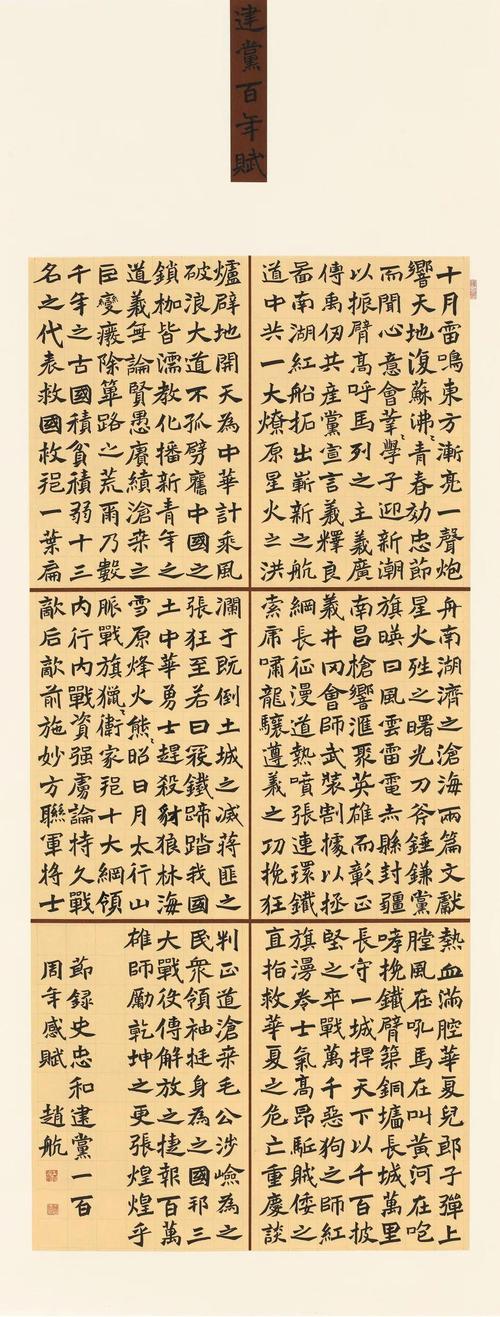 建黨百年賦
十月雷鳴東方漸亮一聲炮
響天地復蘇沸〻青春効忠節
而聞心意會莘〻學子迎新潮
以振臂高呼馬列之主義廣
傳禹仞共産黨宣言義釋良
啚南湖紅船拓出嶄新之航
道中共一大燎原星火之洪
爐辟地開天為中華計乘風
破浪大道不孤劈舊中國之
鎖枷皆濡教化播新青年之
道義無論賢愚賡續滄桒之
巨變癈除篳路之荒爾乃數
千年之古國積貧積弱十三
名之代表救國救一葉扁
舟南湖濟之滄海兩篇文獻
星火之曙光刀斧錘鎌黨
旗暎日風雲雷電赤縣封疆
南昌槍響滙聚英雄而彰正
義井冈會師武裝割據以拯
綱長征漫道熱噴張連環鐵
索席嘯龍驤遵義之功挽狂
瀾于既倒土城之滅蔣匪之
張狂至若日寇鐵蹄踏我國
土中華勇士趕殺豺狼林海
雪原烽火熊〻昭日月太行山
脈戰旗獵〻衛家十大綱領
内行内戰資强虜論持久戰
敵后敵前施妙方聯軍將士
熱血滿腔華夏兒郎子彈上
膛風在吼馬在叫黄河在咆
哮挽鐵臂築銅墻長城萬里
長守一城捍天下以千百披
堅之卒戰萬千惡狗之師紅
旗漫卷士氣高昂駈賊倭之
直拍救華夏之危亡重慶談
判正道滄桒毛公涉嶮為之
民衆領袖挺身為之國邦三
大戰役傳解放之捷報百萬
雄師勵乾坤之更張煌煌乎
節録史忠和建黨一百
周年感賦 趙航